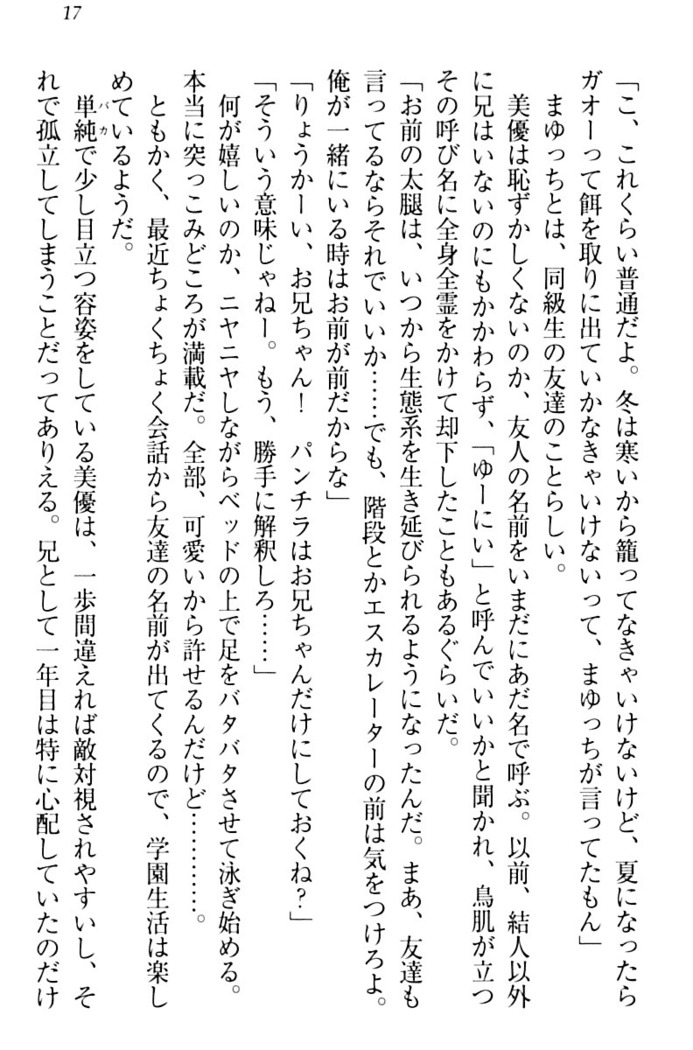 17
「こ、これくらい普通だよ。冬は寒いから籠ってなきゃいけないけど、夏になったら
ガオーって餌を取りに出ていかなきゃいけないって、まゆっちが言ってたもん」
まゆっちとは、同級生の友達のことらしい。
美優は恥ずかしくないのか、友人の名前をいまだにあだ名で呼ぶ。以前、結人以外
に兄はいないのにもかかわらず、「ゆーにい」と呼んでいいかと聞かれ、鳥肌が立つ
その呼び名に全身全霊をかけて却下したこともあるぐらいだ。
「お前の太腿は、いつから生態系を生き延びられるようになったんだ。まあ、友達も
言ってるならそれでいいか……でも、階段とかエスカレーターの前は気をつけろよ。
俺が一緒にいる時はお前が前だからな」
「りょうかーい、お兄ちゃん！　パンチラはお兄ちゃんだけにしておくね？」
「そういう意味じゃねー。もう、勝手に解釈しろ……」
何が嬉しいのか、ニヤニヤしながらベッドの上で足をバタバタさせて泳ぎ始める。
本当に突っこみどころが満載だ。全部、可愛いから許せるんだけど…………。
ともかく、最近ちょくちょく会話から友達の名前が出てくるので、学園生活は楽し
めているようだ。
単純バカで少し目立つ容姿をしている美優は、一歩間違えれば敵対視されやすいし、そ
れで孤立してしまうことだってありえる。兄として一年目は特に心配していたのだけ